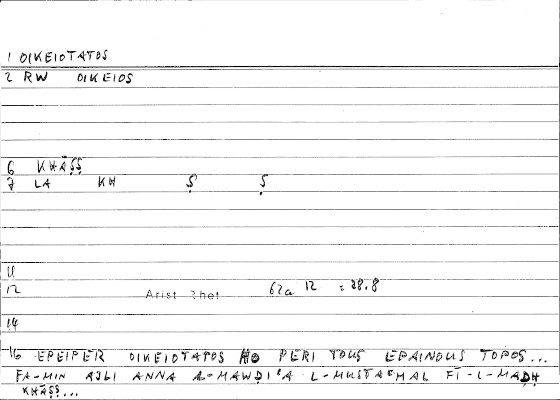 1 OIKEIOTATOS
2 RW OIKEIOS
6 KHĀṢṢ
7 LA KH Ṣ Ṣ
11
12 Arist Rhet 62a 12 = 28.8
14
16 EPEIPER OIKEIOTATOS HO PERI TOUS EPAINOUS TOPOS...
FA-MIN AJLI ANNA L-MAWḌIʿA L-MUSTAʿMAL FĪ-L-MADḤ
KHĀṢṢ...